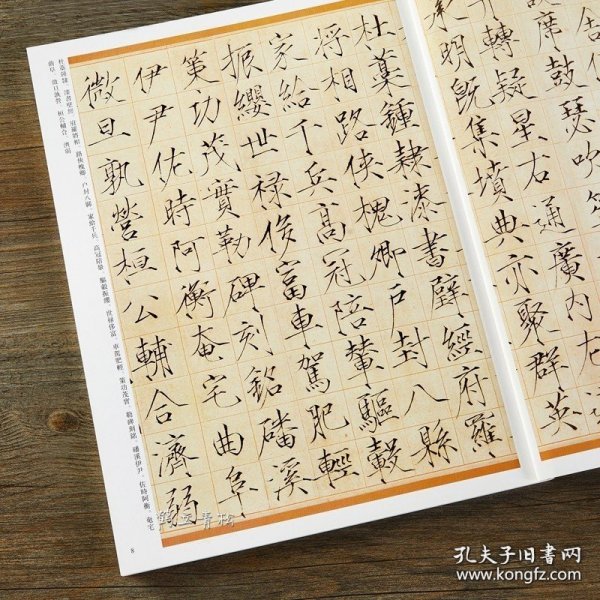 舍
席鼓瑟吹笙
轉疑星右通廣内左
承明既集墳典亦聚群英
杜稾鍾隸漆書壁經府羅
將相路俠槐卿戶封八縣
家給千兵高冠陪輦驅轂
振纓世禄侈富車駕肥輕
策功茂實勒碑刻銘磻溪
伊尹佐時阿衡奄宅曲阜
微旦孰營桓公輔合濟弱
杜稾鍾隸，漆書壁經。府羅將相，路俠槐卿。户封八縣，家給千兵。高冠陪輦，驅轂振纓。世禄侈富，車駕肥輕。策功茂實，勒碑刻銘。磻溪伊尹，佐時阿衡。奄宅
曲阜，微旦孰營。桓公輔合，濟弱
8
鹤立青松
孔夫子旧書网
www.kongfz.com